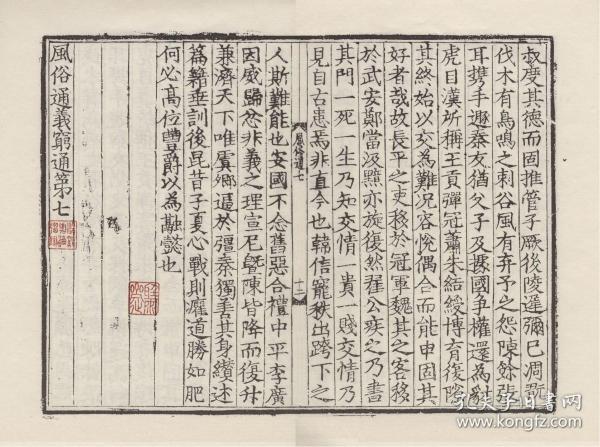 叔度其德而固推管子厥後陵遲彌已凋翫
伐木有鳥鳴之刺谷風有弃予之怨陳餘張
耳攜手遯秦友猶父子及據國爭權還為豺
虎自漢所稱王貢彈冠蕭朱結綬博育復隙
其終始以交為難況容悅偶合而能申固其
好者哉故長平之吏移於冠軍魏其之客移
於武安鄭當汲黯亦旋復然翟公疾之乃書
其門一死一生乃知交情一貴一賤交情乃
見自古患焉非直今也韓信寵秩出跨下之
風俗通七
十二
人斯難能也安國不念舊惡合禮中平李廣
因威歸忿非義之理宣尼暨陳皆降而復升
兼濟天下唯虞卿逼於彊秦獨善其身纘述
篇籍垂訓後昆昔子夏心戰則癯道勝如肥
何必高位豐爵以為融懿也
風俗通義窮通第七
孔夫子旧书网